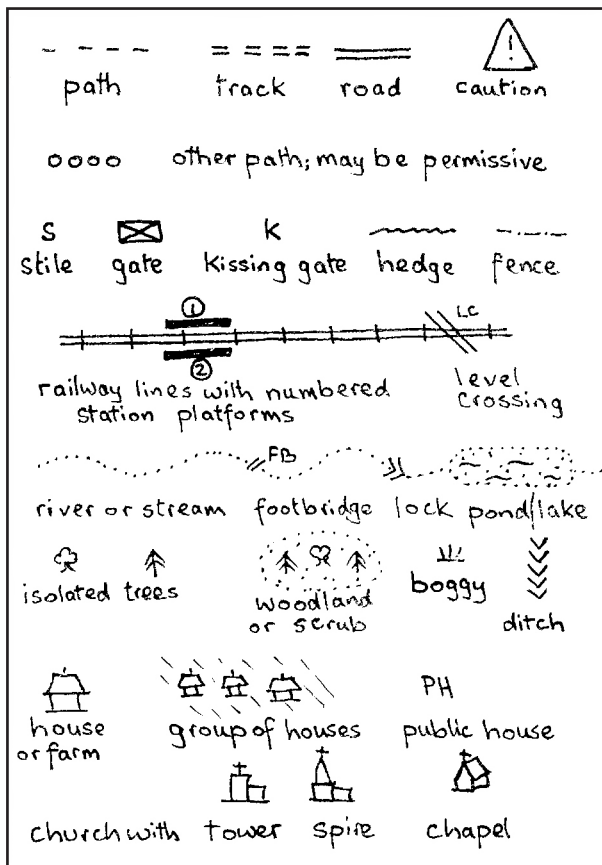 !
path track road caution
oooo other path; may be permissive
S K
stile gate kissing gate hedge fence
①
LC
②
railway lines with numbered
station platforms
level
crossing
FB
river or stream footbridge lock pond/lake
isolated trees
woodland
or scrub
boggy
ditch
PH
house
or farm
group of houses
public house
church with tower spire chapel